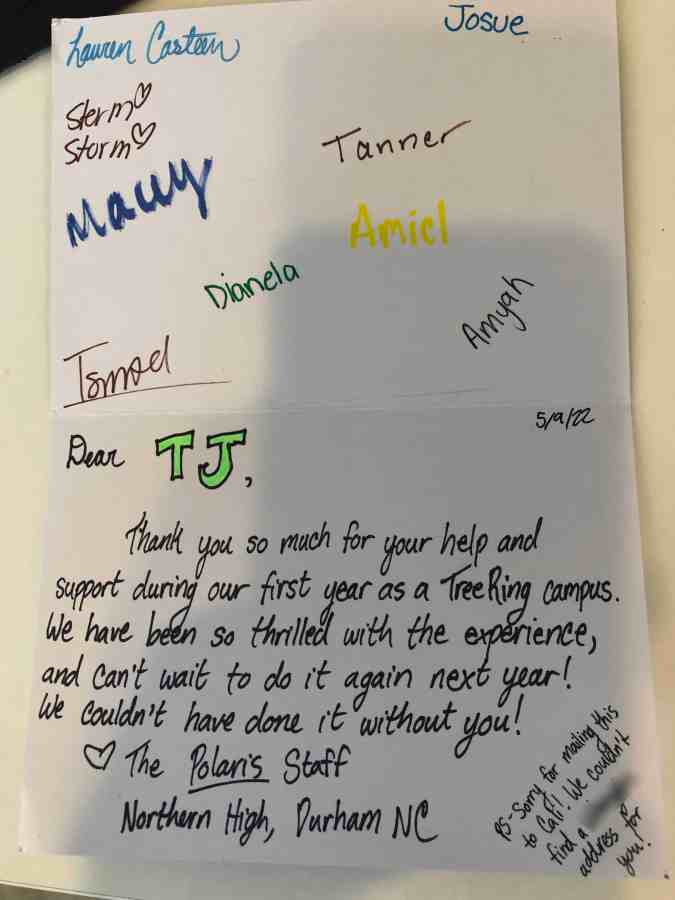 Lauren Casteen
Josue
Sterm♡
Storm♡
Tanner
Macey
Amiel
Dianela
Amyah
Ismael
5/9/22
Dear TJ,
Thank you so much for your help and
support during our first year as a TreeRing campus.
We have been so thrilled with the experience,
and can't wait to do it again next year!
We couldn't have done it without you!
♡ The Polaris Staff
Northern High, Durham NC
PS-Sorry for mailing this
to Cali! We couldn't
find a
address for
you!